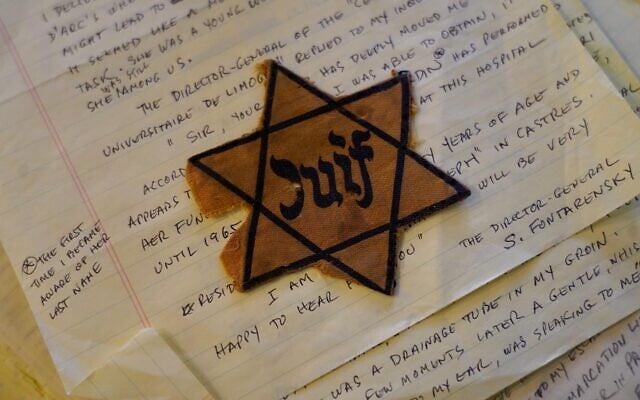 I DELIVE
D'ARC'S WHE
MIGHT LEAD TO
IT SEEMED LIKE A
TASK. SHE WAS A YOUNG
IT'S STILL
SHE AMONG US.
THE DIRECTOR-GENERAL OF THE "CE
UNIVERSITAIRE DE LIMOG REPLIED TO MY INQU
" SIR, YOUR HAS DEEPLY MOVED ME
I WAS ABLE TO OBTAIN, I
DIN HAS PERFORMED
AT THIS HOSPITAL
ACCOR YEARS OF AGE AND
APPEARS T EPH" IN CASTRES.
AER FUN WILL BE VERY
UNTIL 1965
RESID
I AM YOU"
HAPPY TO HEAR
THE DIRECTOR-GENERAL
S. FONTARENSKY
THE FIRST
TIME I BECAME
AWARE OF HER
LAST NAME
Juif
WAS A DRAINAGE TUBE IN MY GROIN.
FEW MOMENTS LATER A GENTLE, WHI
TO MY EAR, WAS SPEAKING TO ME
TO MY ESC
MARCATION LI